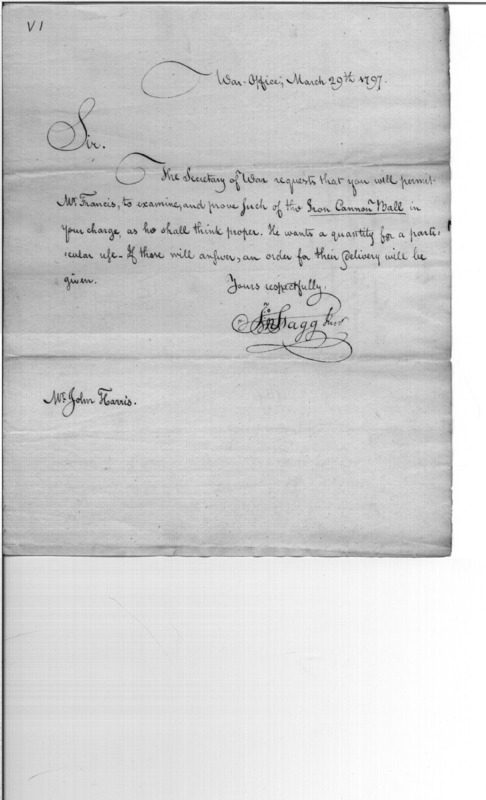 VI
War-Office, March 29th 1797.
Sir.
The Secretary of War requests that you will permit
Mr. Francis, to examine, and prove such of the Iron Cannon Ball in
your charge, as he shall think proper. He wants a quantity for a parti-
cular use - If these will answer, an order for their delivery will be
given.
Yours respectfully,
Jno Stagg Junr
Mr. John Harris.